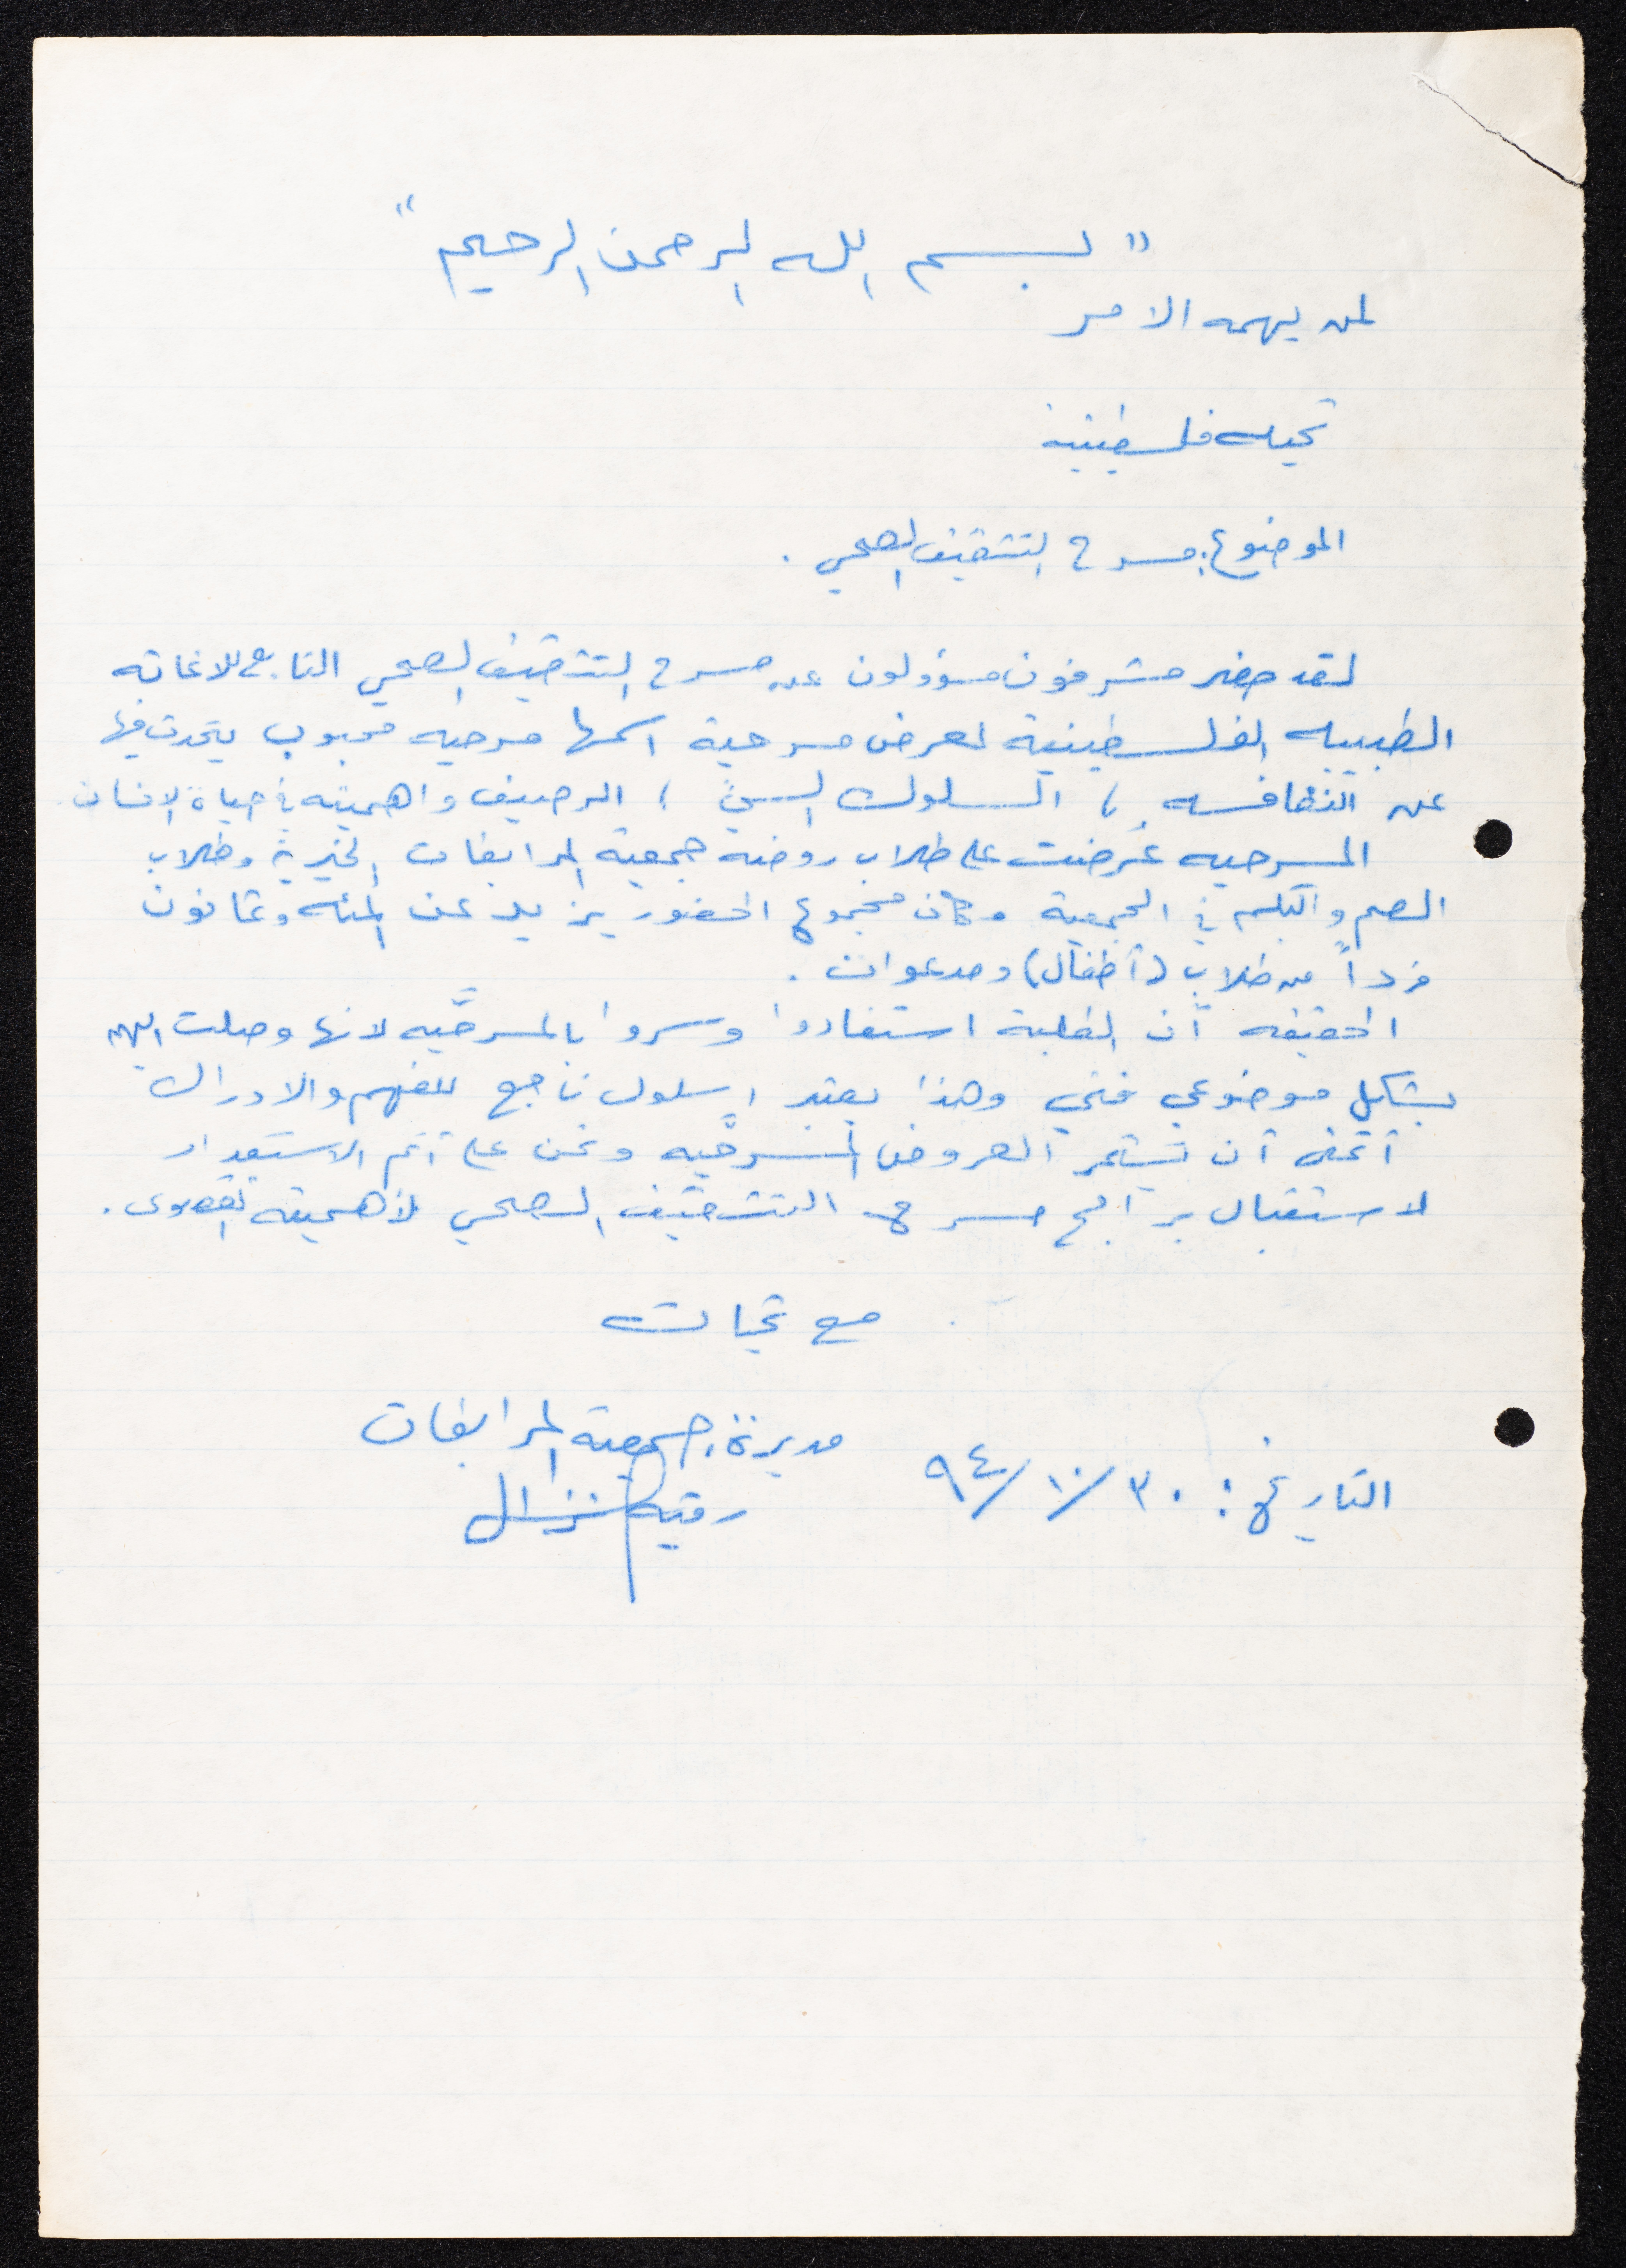 " بسم الله الرحمن الرحيم "
لمن يهمه الامر
تحيه فلسطينية
الموضوع: مسرح التثقيف الصحي .
لقد حضر مشرفون مسؤولون عن مسرح التثقيف الصحي التابع للاغاثه
الطبيبه الفلسطينية لعرض مسرحية اسمها مسرحيه محبوب يتحدث فيها
عن النظافه ، السلوك السيئ ، الرصيف واهميته في حياة الإنسان
المسرحيه عُرضت على طلاب روضه جمعية المرابطات الخيرية وطلاب
الصم والبكم في الجمعية وكان مجموع الحضور يزيد عن المئه وثمانون
فرداً من طلاب (أطفال) ومدعوات .
الحقيقه أن الطلبة استفادوا وسروا بالمسرحيّه لانها وصلت اليهم
بشكل موضوعي فني وهذا يعتبر اسلوب ناجح للفهم والادراك
أتمنى أن تستمر العروض المسرحيه ونحن على أتم الاستعداد
لاستقبال برامج مسرح التثقيف الصحي لأهميته القصوى .
مع تحيات
مديرة جمعية المرابطات
رقيه نزال
التاريخ : ٣٠/ ١٠/ ٩٤